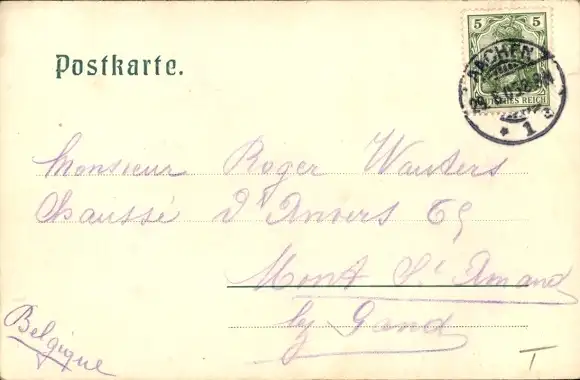 Postkarte.
5 5
AACHEN
DEUTSCHES REICH
* 1
Monsieur Roger Wauters
Chaussé D'Anvers 65
Mont St Amand
by Gand
Belgique
T